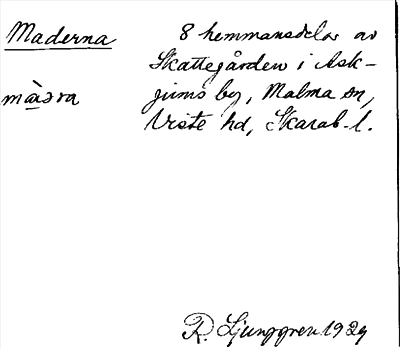 Maderna
8 hemmansdelar av
Skattegården i Ask-
jums by, Malma sn,
Viste hd, Skarab. l.
R. Ljunggren 1929